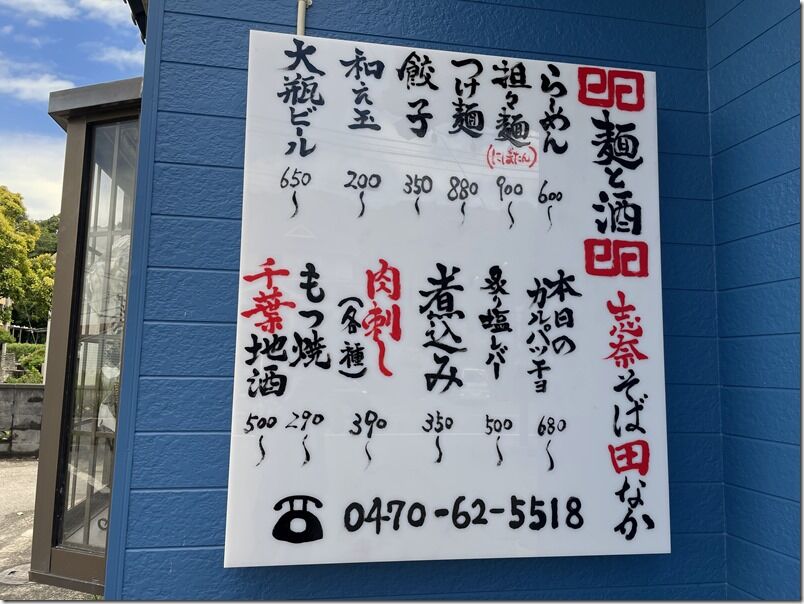 麺と酒
志奈そば田なか
らーめん 600〜
担々麺(にぼたん) 900〜
つけ麺 880〜
餃子 350〜
和え玉 200〜
大瓶ビール 650〜
本日のカルパッチョ 680〜
炙り塩レバー 500〜
煮込み 350〜
肉刺し(各種) 390〜
もつ焼 290〜
千葉地酒 500〜
☎ 0470-62-5518